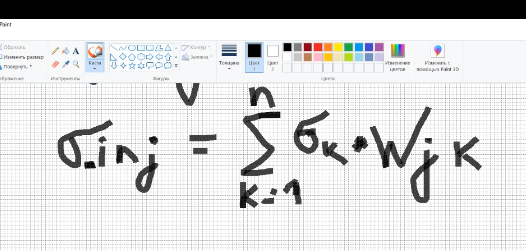 Paint
Обрезать
Изменить размер
Повернуть
Изображение
Инструменты
Кисти
Контур
Заливка
Фигуры
Толщина
Цвет 1
Цвет 2
Изменение цветов
Изменить с помощью Paint 3D
Цвета
n
σinj = Σ σk * Wjk
k=1